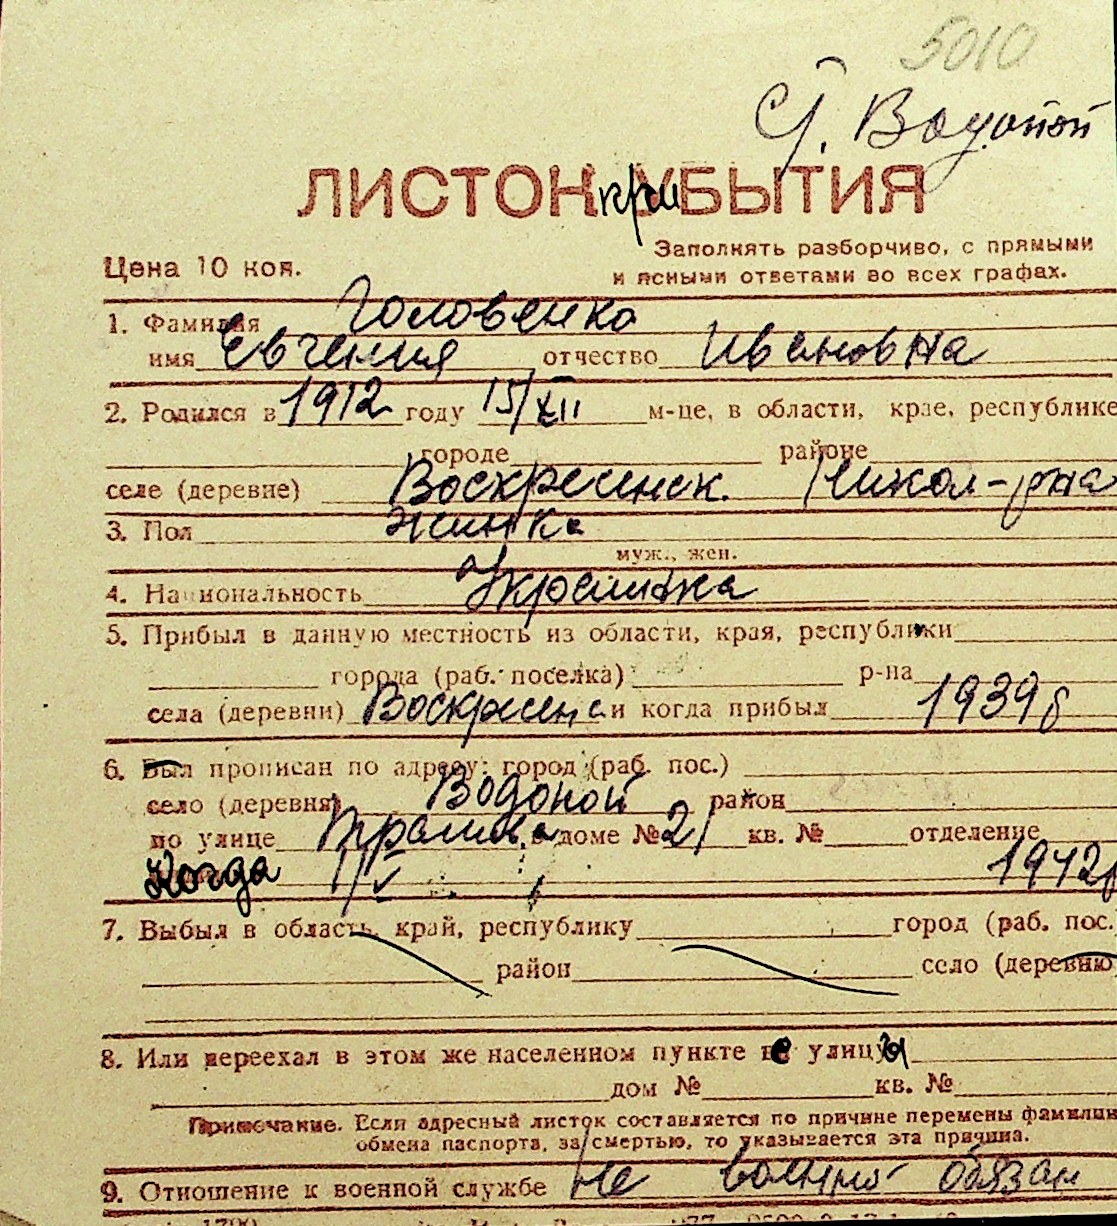 5010
с. Водопой
ЛИСТОК УБЫТИЯ
Заполнять разборчиво, с прямыми
Цена 10 коп.
и ясными ответами во всех графах.
1. Фамилия Головенко
имя Евгения отчество Ивановна
2. Родился в 1912 году 15/XII м-це, в области, крае, республике
городе районе
селе (деревне) Воскресенск. Никол-рна
3. Пол женск.
муж., жен.
4. Национальность Украинка
5. Прибыл в данную местность из области, края, республики
города (раб. поселка) р-на
села (деревни) Воскресенс и когда прибыл 1939 г
6. Был прописан по адресу: город (раб. пос.)
село (деревня) Водопой район
по улице в доме № 21 кв. № отделение
Когда 1/V 1942 г
7. Выбыл в область, край, республику город (раб. пос.
район село (деревню
8. Или переехал в этом же населенном пункте не улицу
дом № кв. №
Примечание. Если адресный листок составляется по причине перемены фамилии
обмена паспорта, за смертью, то указывается эта причина.
9. Отношение к военной службе Не военно-обязан